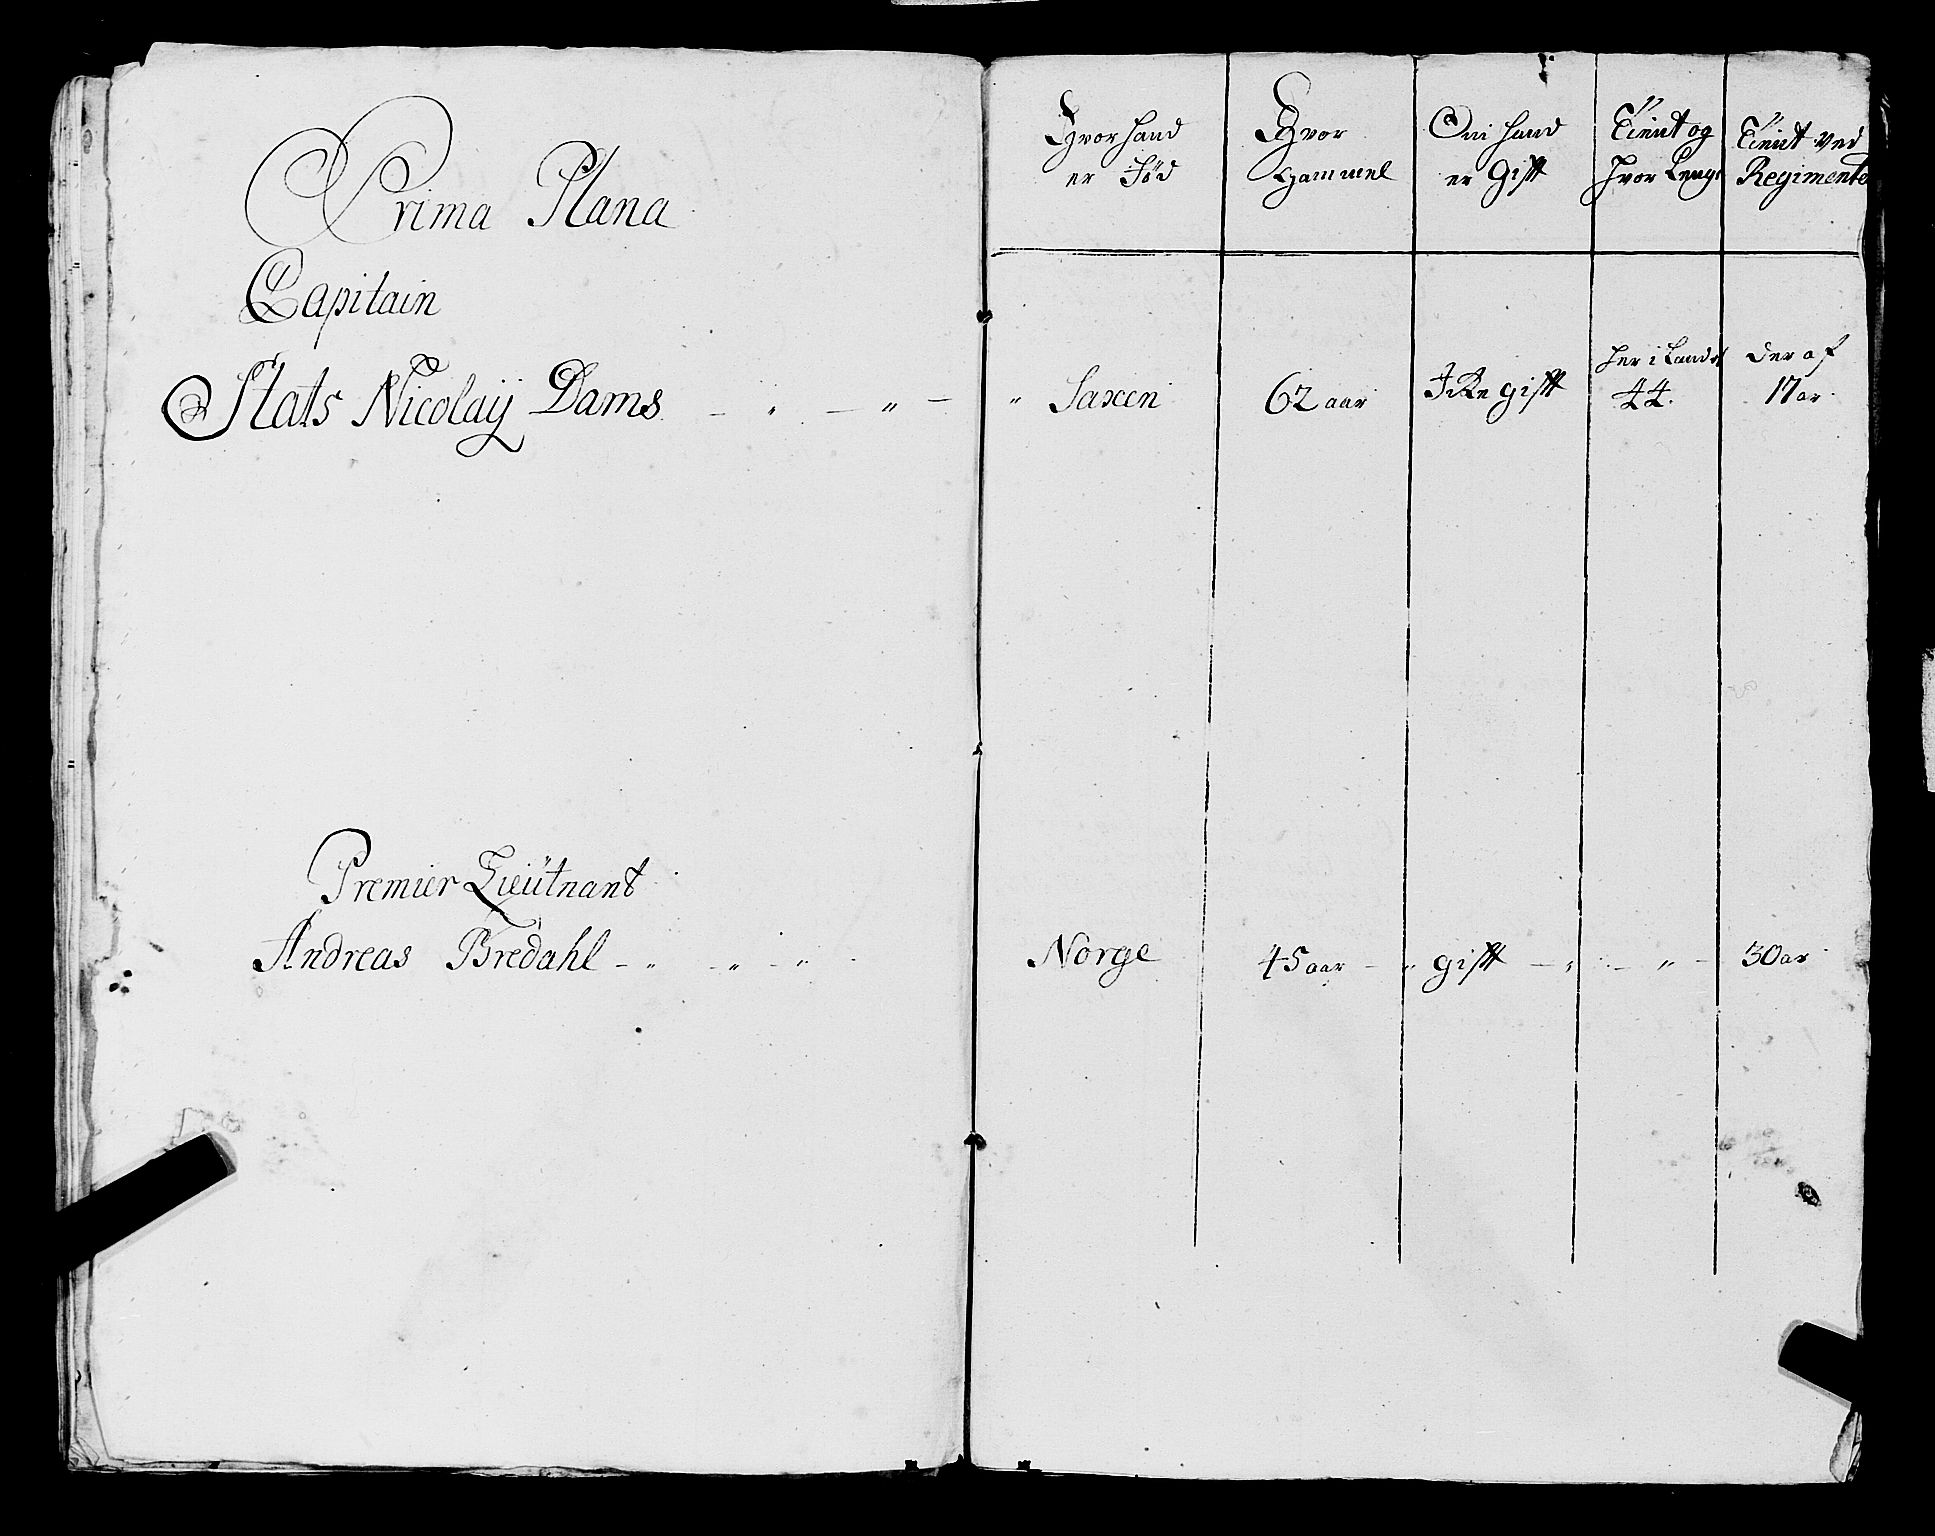 Prima Plana
Capitain
Stats Nicolaij Dams - " - " - "
Premier Lieütnant
Andreas Bredahl - " - " - " -
Hvor hand er Fød
Hvor Gammel
Om hand er Gift
Tient og hvor Lenge
Tient ved Regimentet
Saxen
62 aar
Ikke gifft
her i Landet 44.
der af 17 ar
Norge
45 aar - "
gifft - "
- " -
30 ar